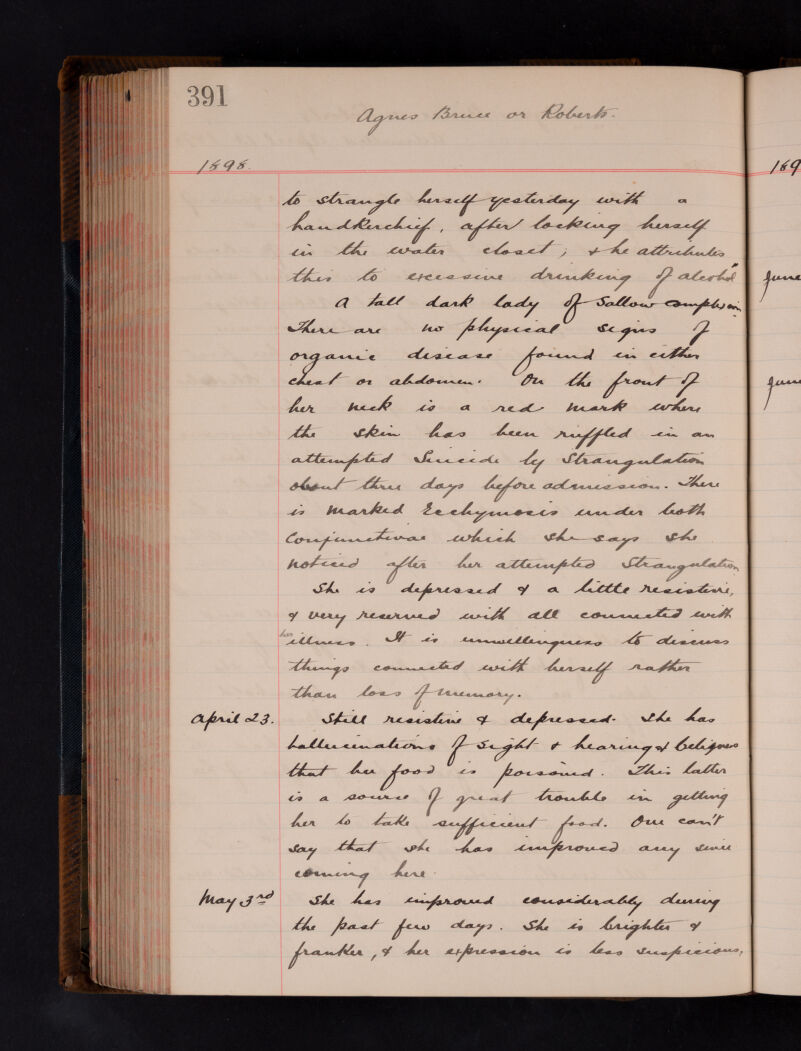 391
Agnes Bruce or Roberts.
1898.
to strangle herself yesterday with a
handkerchief, after locking herself
in the water closet; & he attributes
this to excessive drinking of alcohol"
A tall dark lady of Sallow complexion.
There are no physical signs of
organic disease found in either
chest or abdomen. On the front of
her neck is a red mark where
the skin has been ruffled in an
attempted Suicide by Strangulation
about three days before admission. There
is marked Ecchymosis under both
Conjunctivae which she says she
noticed after her attempted Strangulation.
She is depressed & a little resistive,
& very reserved with all connected with
her illness. It is unwillingness to discuss
things connected with herself rather
than loss of memory.
April 23. Still resistive & depressed. She has
hallucinations of sight & hearing & believes
that her food is poisoned. This latter
is a source of great trouble in getting
her to take sufficient food. One can't
say that she has improved any since
coming here.
May 3rd She has improved considerably during
the past few days. She is brighter &
franker, & her expression is less suspicious,
189
June
June